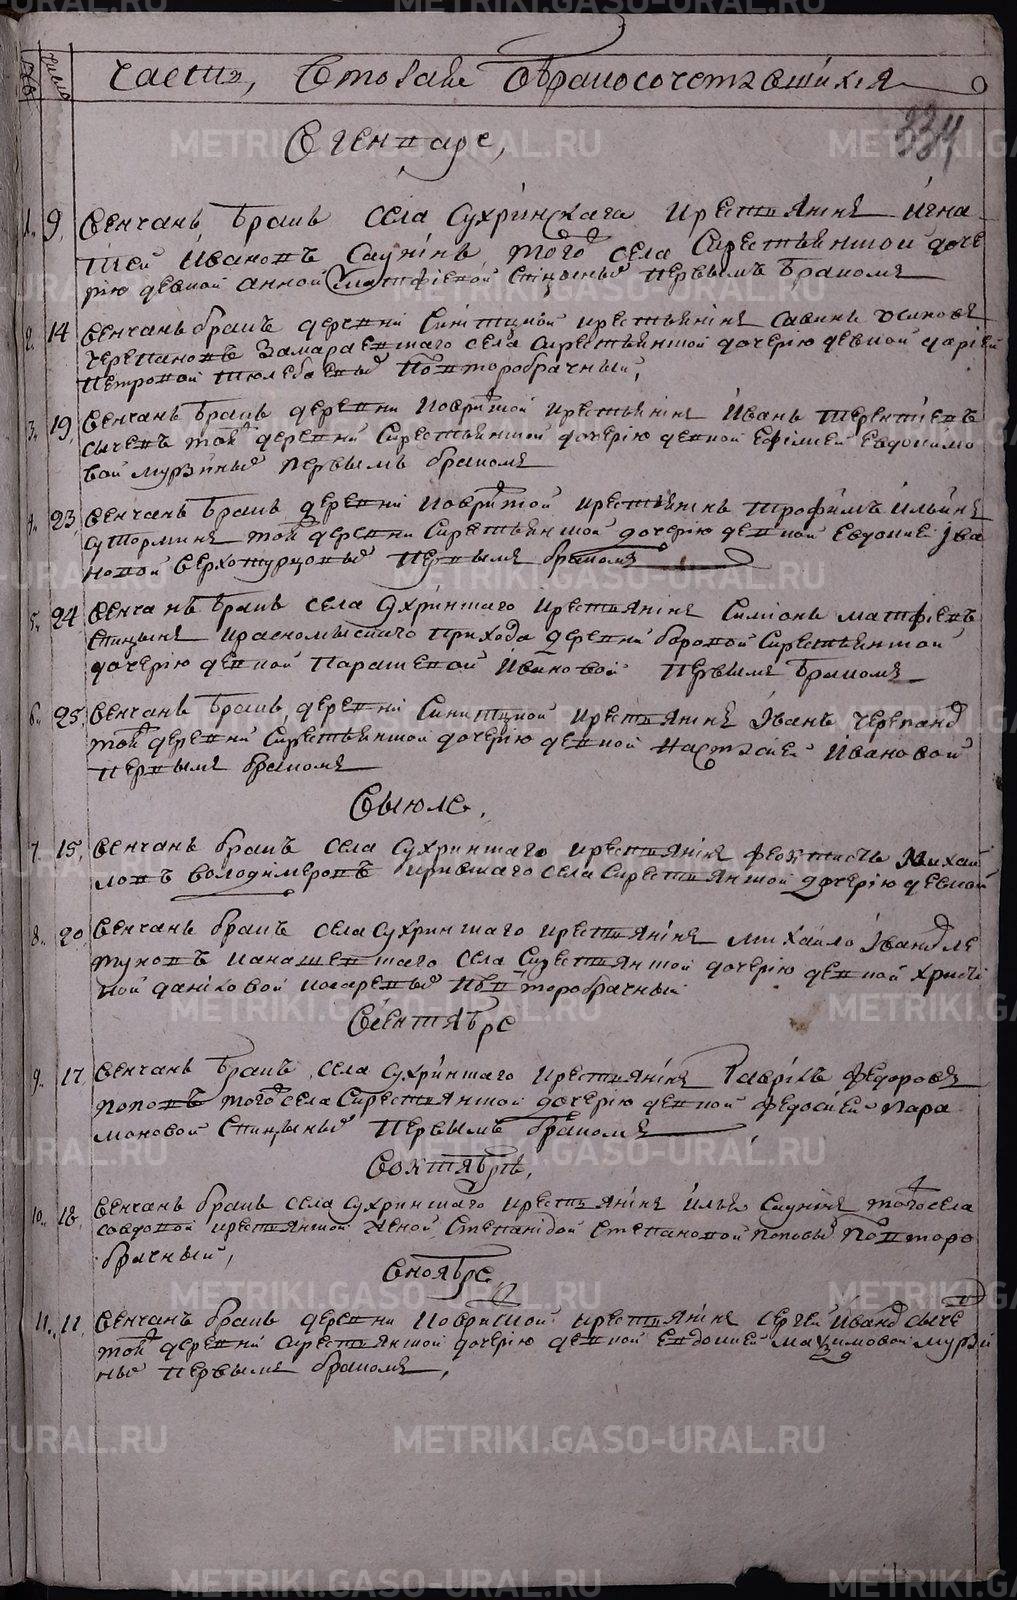 часть, вторая о бракосочетавшихся
334
В генваре,
1. 9. Венчанъ бракъ села Сухринскаго крестьянинъ Игна
тей Ивановъ Саунинъ, того села с крестьянской доче
рию девкой Анной Матфиевой Спицыныхъ первымъ бракомъ
2. 14 Венчанъ бракъ деревни крестьянинъ Савинъ Осиповъ
Черепановъ Замараевшаго села с крестьянской дочерию девкой Марией
Петровой Тюлебаевыхъ второбрачный,
3. 19, Венчанъ бракъ деревни крестьянинъ Иванъ Терентиевъ
Сычевъ той деревни с крестьянской дочерию девкой Ефимией Евдокимо
вой Мурзиныхъ первымъ бракомъ
4. 23, Венчанъ бракъ деревни крестьянинъ Трофимъ Ильинъ
Сутормин той деревни с крестьянской дочерию девкой Евдокией Iва
новой Верхотурцовыхъ первымъ бракомъ
5. 24 Венчанъ бракъ села Сухринскаго крестьянинъ Симионъ Матфиевъ
Спицынъ Красномысскаго прихода деревни Боровой с крестьянской
дочерию девкой Парасковой Ивановой первымъ бракомъ
6. 25, Венчанъ бракъ деревни крестьянинъ Iванъ Черепанов
той деревни с крестьянской дочерию девкой Настасией Ивановой
первымъ бракомъ
В июле,
7. 15, Венчанъ бракъ села Сухринскаго крестьянинъ Феоктистъ Михаи
ловъ Володимеровъ села с крестьянской дочерию девкой
8. 20, Венчанъ бракъ села Сухринскаго крестьянинъ Михайло Iванов Ле
туновъ села с крестьянской дочерию девкой Христи
ной Даниловой второбрачный
В сентябре
9. 17 Венчанъ бракъ села Сухринскаго крестьянинъ Гаврилъ Федоровъ
Поповъ того села с крестьянской дочерию девкой Федосией Пара
моновой Спицыныхъ первымъ бракомъ
В октябре,
10. 18, Венчанъ бракъ села Сухринскаго крестьянинъ Илья Саунинъ того села
со вдовой крестьянской женой Степанидой Степановой Поповыхъ второ
брачный,
В ноябре,
11. 11, Венчанъ бракъ деревни крестьянинъ Сергей Иванов Сыче
той деревни с крестьянской дочерию девкой Евдокией Махимовой Мурзи
ныхъ первымъ бракомъ,
METRIKI.GASO-URAL.RU